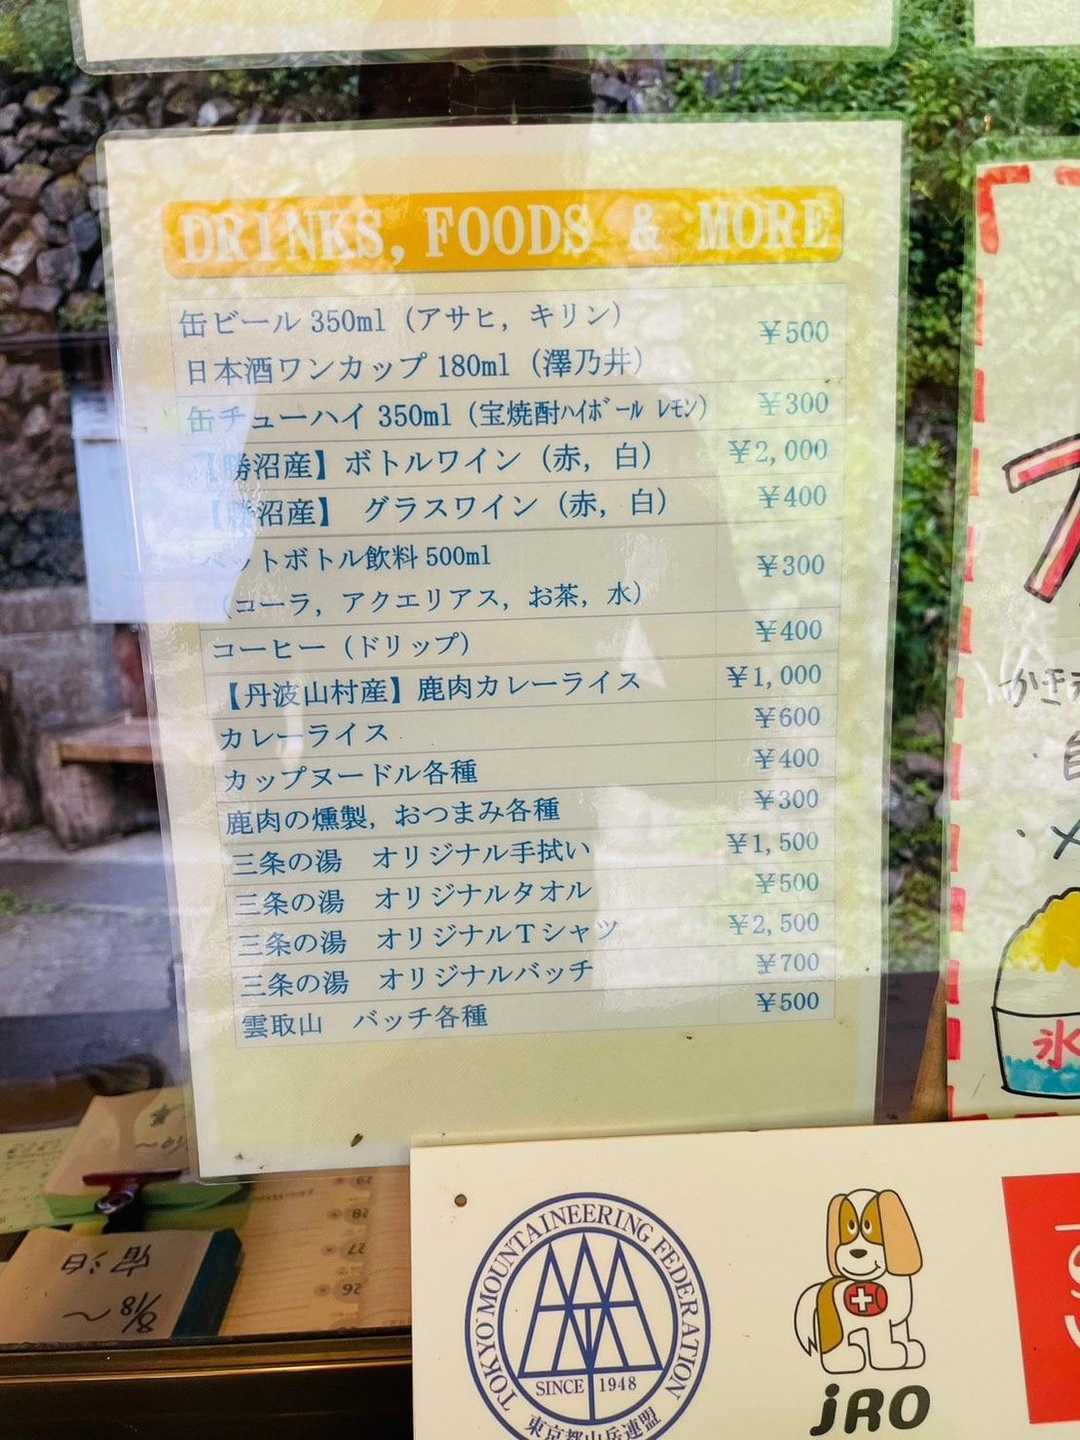 DRINKS, FOODS & MORE
缶ビール 350ml（アサヒ，キリン）
¥500
日本酒ワンカップ 180ml（澤乃井）
缶チューハイ 350ml（宝焼酎ﾊｲﾎﾞｰﾙ ﾚﾓﾝ） ¥300
【勝沼産】ボトルワイン（赤，白） ¥2,000
【勝沼産】 グラスワイン（赤，白） ¥400
ペットボトル飲料 500ml
¥300
（コーラ，アクエリアス，お茶，水）
コーヒー（ドリップ） ¥400
【丹波山村産】鹿肉カレーライス ¥1,000
カレーライス ¥600
カップヌードル各種 ¥400
鹿肉の燻製，おつまみ各種 ¥300
三条の湯 オリジナル手拭い ¥1,500
三条の湯 オリジナルタオル ¥500
三条の湯 オリジナルTシャツ ¥2,500
三条の湯 オリジナルバッチ ¥700
雲取山 バッチ各種 ¥500
かき
氷
8/18〜
TOKYO MOUNTAINEERING FEDERATION
SINCE 1948
東京都山岳連盟
jRO